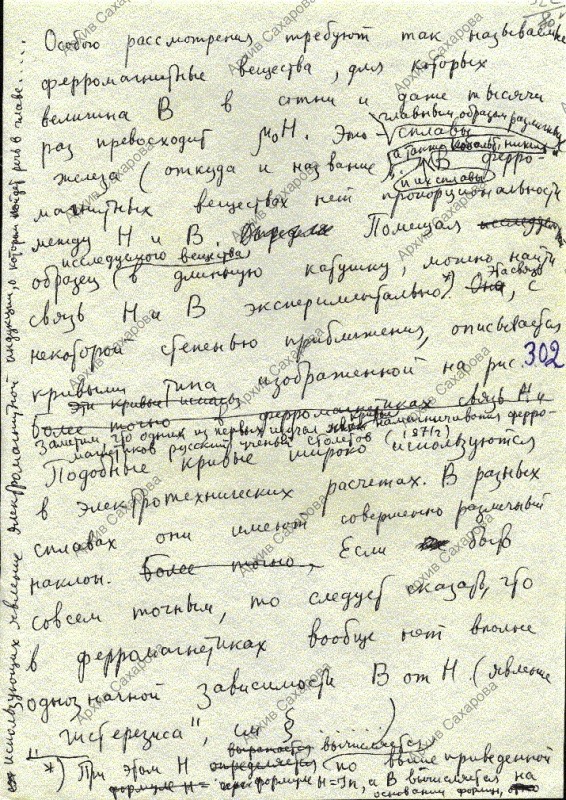 Особого рассмотрения требуют так называемые
ферромагнитные вещества, для которых
величина B в сотни и даже тысячи
раз превосходит μ₀H. Это сплавы главным образом различных
железа (откуда и название), а также
и их сплавы. В ферро-
магнитных веществах нет пропорциональности
между H и B. Помещая
образец исследуемого вещества в длинную катушку, можно найти
связь H и B экспериментально*). Эта связь, с
некоторой степенью приближения, описывается
кривыми типа изображенной на рис. 302
Эти кривые
Более точно в ферромагнетиках связь H и
Заметим, что одним из первых изучал кривые намагничивания ферро-
магнетиков русский ученый Столетов (1872)
Подобные кривые широко используются
в электротехнических расчетах. В разных
сплавах они имеют совершенно различный
наклон. Более точно, Если быть
совсем точным, то следует сказать, что
в ферромагнетиках вообще нет вполне
однозначной зависимости B от H (явление
"гистерезиса", см § )
вычисляется
*) При этом H определяется по выше приведенной
формуле H = формуле H=In, а B вычисляется на
основании формул,
использующих явление электромагнитной индукции, о котором пойдет речь в главе....
Архив Сахарова